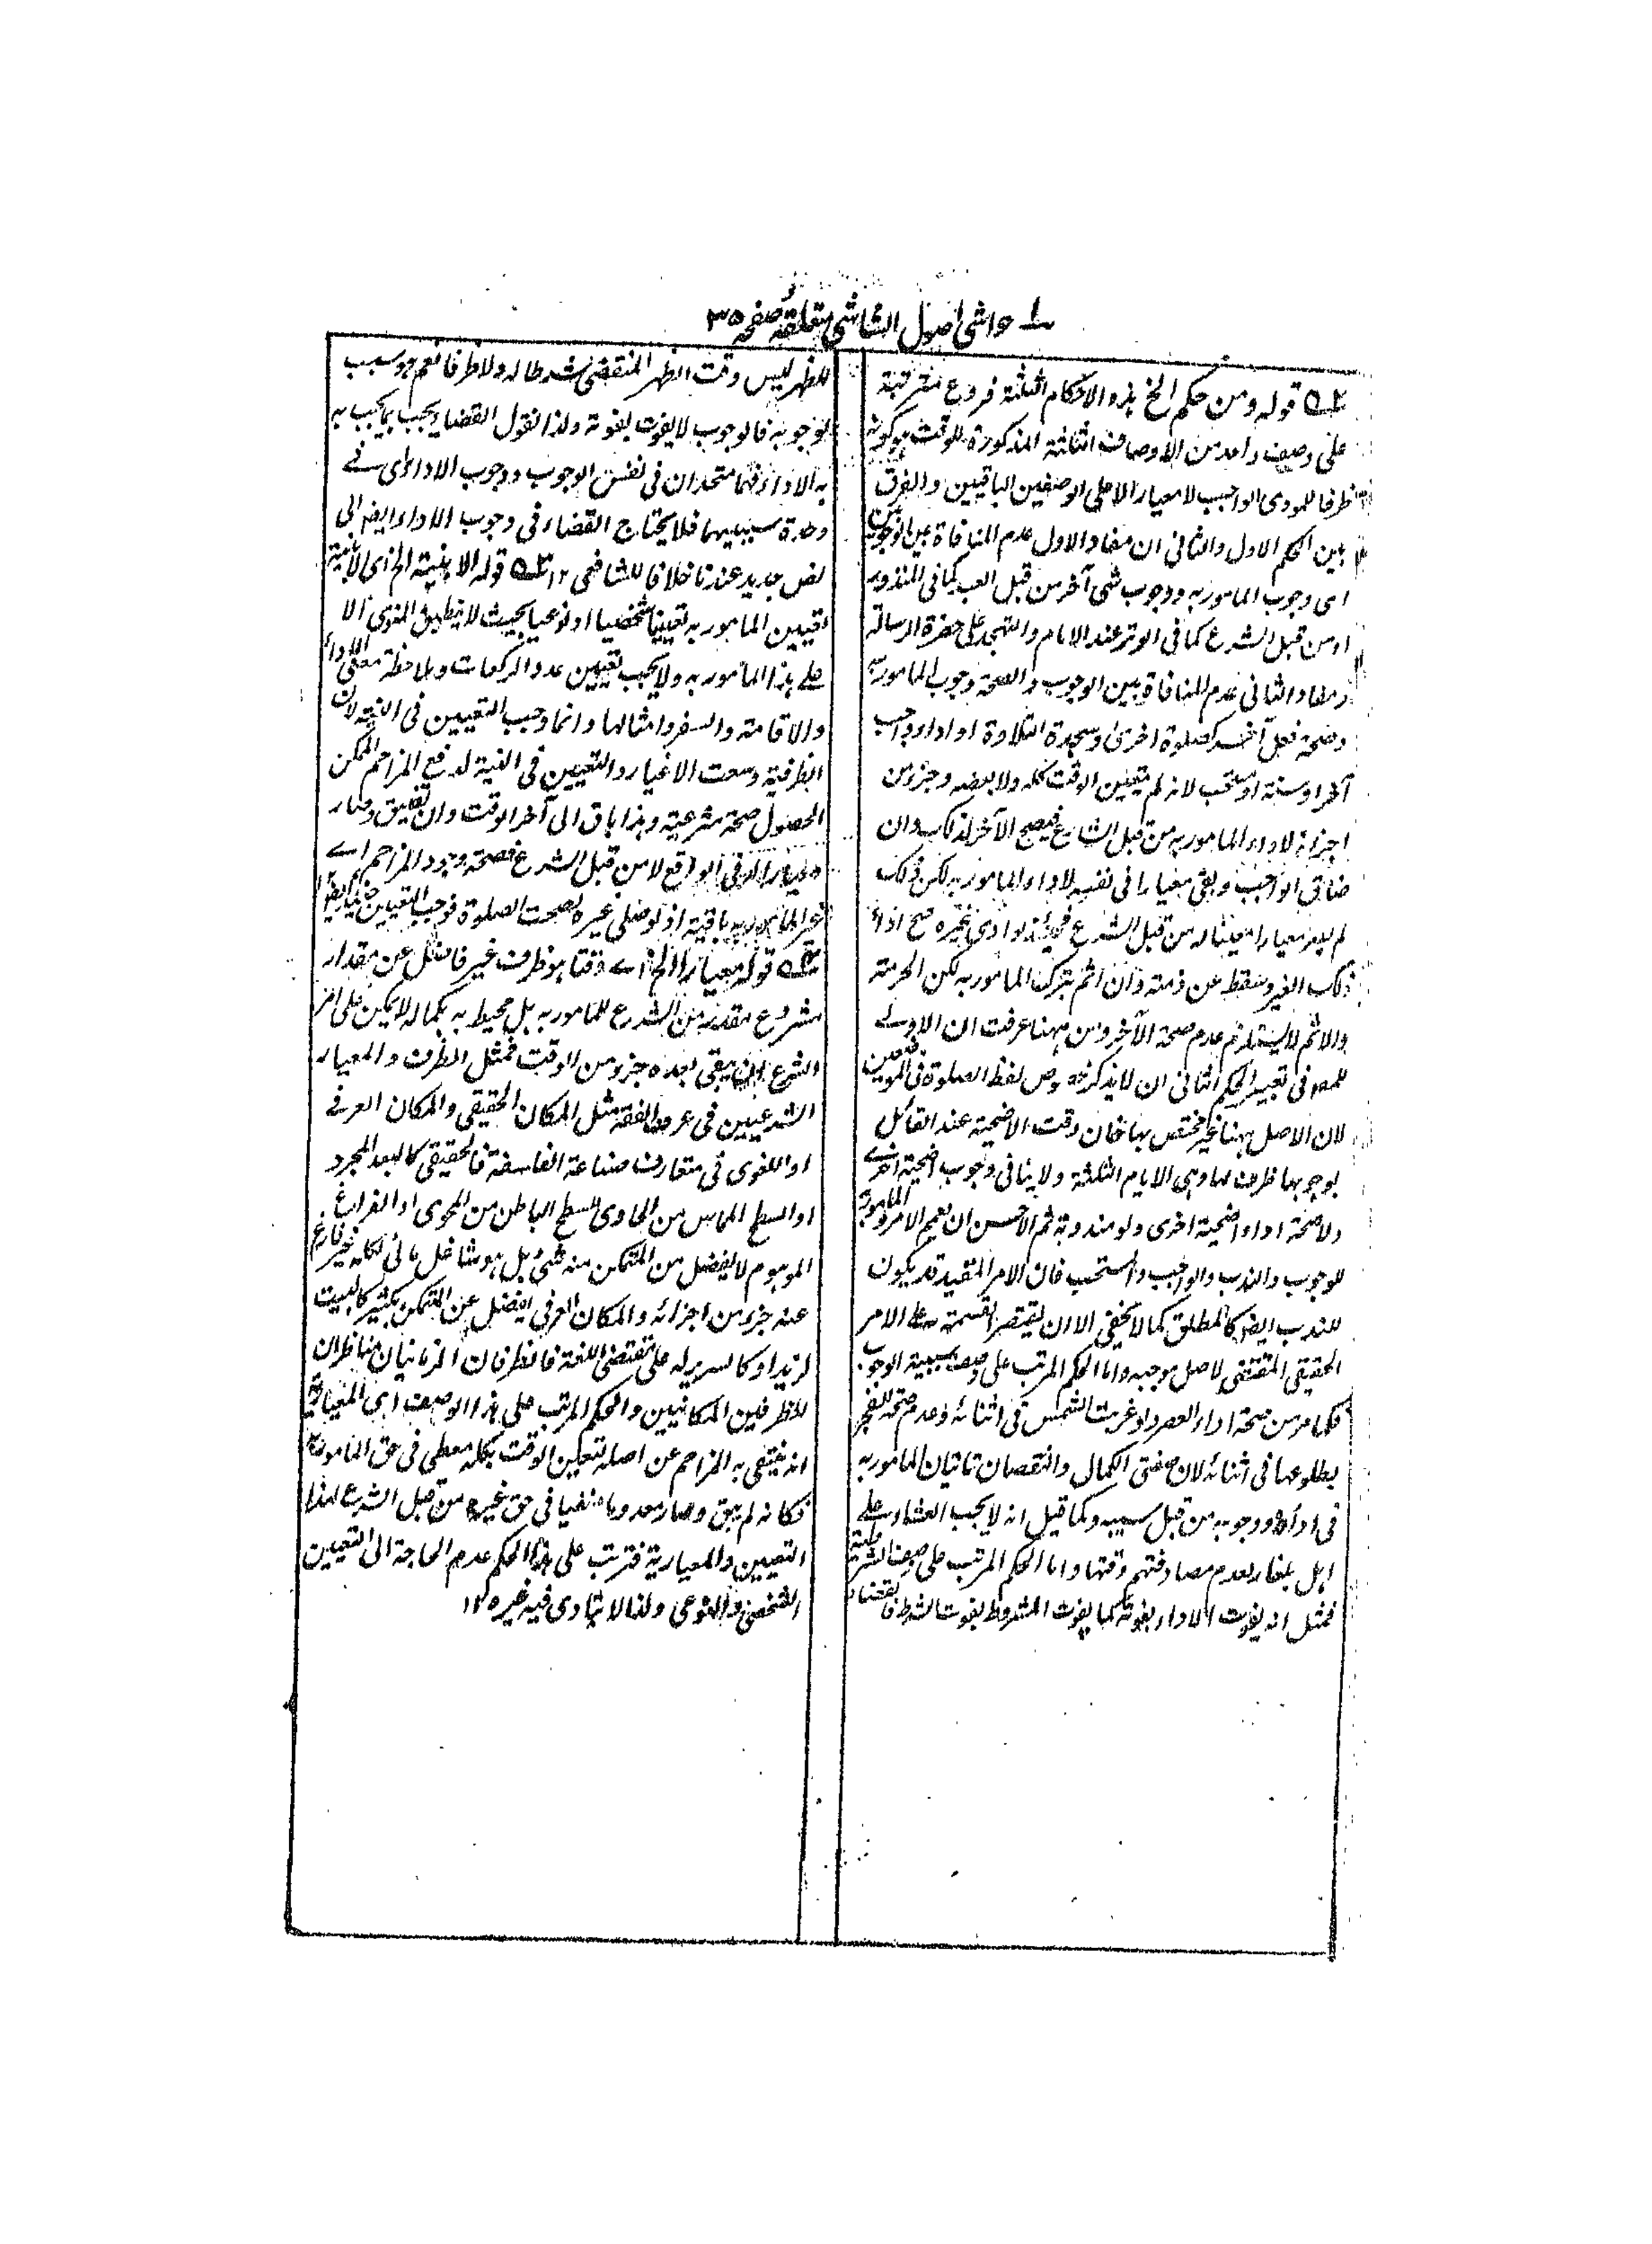 حواشی اصول الشاشی متعلقہ صفحہ ۳۵
قوله ومن حكم الخ هذه الاحكام الثلثة فروع متفرعة
على وصف واحد من الاوصاف الثلثة المذكورة للوقت هو كونه
ظرفا للمودى الواجب لا معيارا لا على الوصفين الباقيين والفرق
بين الحكم الاول والثانى ان مفاد الاول عدم المنافاة بين الوجوبين
اى وجوب المامور به ووجوب شئ آخر من قبل العبد كما فى المنذور
او من قبل الشرع كما فى الوتر عند الامام والتهجد على حضرة الرسالة
ومفاد الثانى عدم المنافاة بين الوجوب والصحة وجوب المامور به
وصحة فعل آخر كصلوة اخرى وسجدة التلاوة او اداء واجب
آخر او سنة او مستحب لانه لم يتعين الوقت كله ولا بعضه وجزء من
اجزائه لاداء المامور به من قبل الشارع فيصح الآخر لذلك وان
ضاق الواجب وبقى معيارا فى نفسه لاداء المامور به لكن ذلك
لم يصر معيارا معينا له من قبل الشرع فحينئذ لو ادى غيره صح اداء
ذلك الغير وسقط عن ذمته وان اثم بترك المامور به لكن الحرمة
والاثم لا يستلزم عدم صحة الآخر ومن ههنا عرفت ان الاولى
للمص فى تعبير الحكم الثانى ان لا يذكر خصوص لفظ الصلوة فى الموضعين
لان الاصل ههنا غير مختص بها فان وقت الاضحية عند القائل
بوجوبها ظرف لها وهى الايام الثلثة ولا ينافى وجوب اضحية اخرى
ولا صحة اداء اضحية اخرى ولو مندوبة ثم الاحسن ان يعم الامر والمامور به
للوجوب والندب والواجب والمستحب فان الامر المقيد قد يكون
للندب ايضا كالمطلق كما لا يخفى الا ان يقتصر القسمة على الامر
الحقيقى المقتضى لاصل موجبه واما الحكم المرتب على وصف سببية الوجوب
فكما مر من صحة اداء العصر لو غربت الشمس فى اثنائه وعدم صحة الفجر
بطلوعها فى اثنائه لان صفتى الكمال والنقصان تاتيان المامور به
فى ادائه ووجوبه من قبل سببه وكما قيل انه لا يجب العشاء على
اهل بلغار لعدم مصادفتهم وقتها واما الحكم المرتب على وصف الشرطية
فمثل انه يفوت الاداء بفوته كما يفوت المشروط بفوت الشرط فالقضاء
للظهر ليس وقت الظهر المنقضى شرطا له ولا ظرفا نعم هو سبب
لوجوبه فالوجوب لا يفوت بفوته ولذا نقول القضاء يجب بما يجب به
به الاداء فهما متحدان فى نفس الوجوب ووجوب الاداء اى فى
وحدة سببيهما فلا يحتاج القضاء فى وجوب الاداء ايضا الى
نص جديد عندنا خلافا للشافعى ۱۲ قوله الا بنية الخ اى الا بنية
تعيين المامور به تعيينا شخصيا او نوعيا بحيث لا ينطبق المنوى الا
على هذا المامور به ولا يجب تعيين عدد الركعات وملاحظة معنى الاداء
والاقامة والسفر وامثالها وانما وجب التعيين فى النية لان
الظرفية وسعت الاغيار والتعيين فى النية لدفع المزاحم الممكن
الحصول صحة شرعية وهذا باق الى آخر الوقت وان تضيق وصار
معيارا له فى الواقع لا من قبل الشرع فصحة وجود المزاحم اى
غير المامور به باقية اذ لو صلى غيره لصحت الصلوة فوجب التعيين حينئذ ايضا
قوله معيارا الخ اى وقتا هو ظرف غير فاضل عن مقدار
مشروع مقدر من الشرع للمامور به بل محيط به بكماله لا يمكن على امر
الشرع ان يبقى بعده جزء من الوقت فمثل الظرف والمعيار
الشرعيين فى عرف الفقه مثل المكان الحقيقى والمكان العرفى
او اللغوى فى متعارف صناعة الفلسفة فالحقيقى كالبعد المجرد
او السطح المماس من الحاوى للسطح الباطن من المحوى او الفراغ
الموهوم لا يفضل من المتمكن منه شئ بل هو شاغل مالئ لكله غير فارغ
عنه جزء من اجزائه والمكان العرفى يفضل عن المتمكن بكثير كالبيت
لزيد او كالسرير له على مقتضى اللغة فالظرفان الزمانيان مناظران
للظرفين المكانيين والحكم المرتب على هذا الوصف اى المعيارية
انه ينتفى به المزاحم عن اصله لتعين الوقت بكله معطى فى حق المامور به
فكانه لم يبق وصار معدوما منفيا فى حق غيره من قبل الشرع لهذا
التعيين والمعيارية فترتب على هذا الحكم عدم الحاجة الى التعيين
الشخصى والنوعى ولذا لا يتادى فيه غيره ۱۲